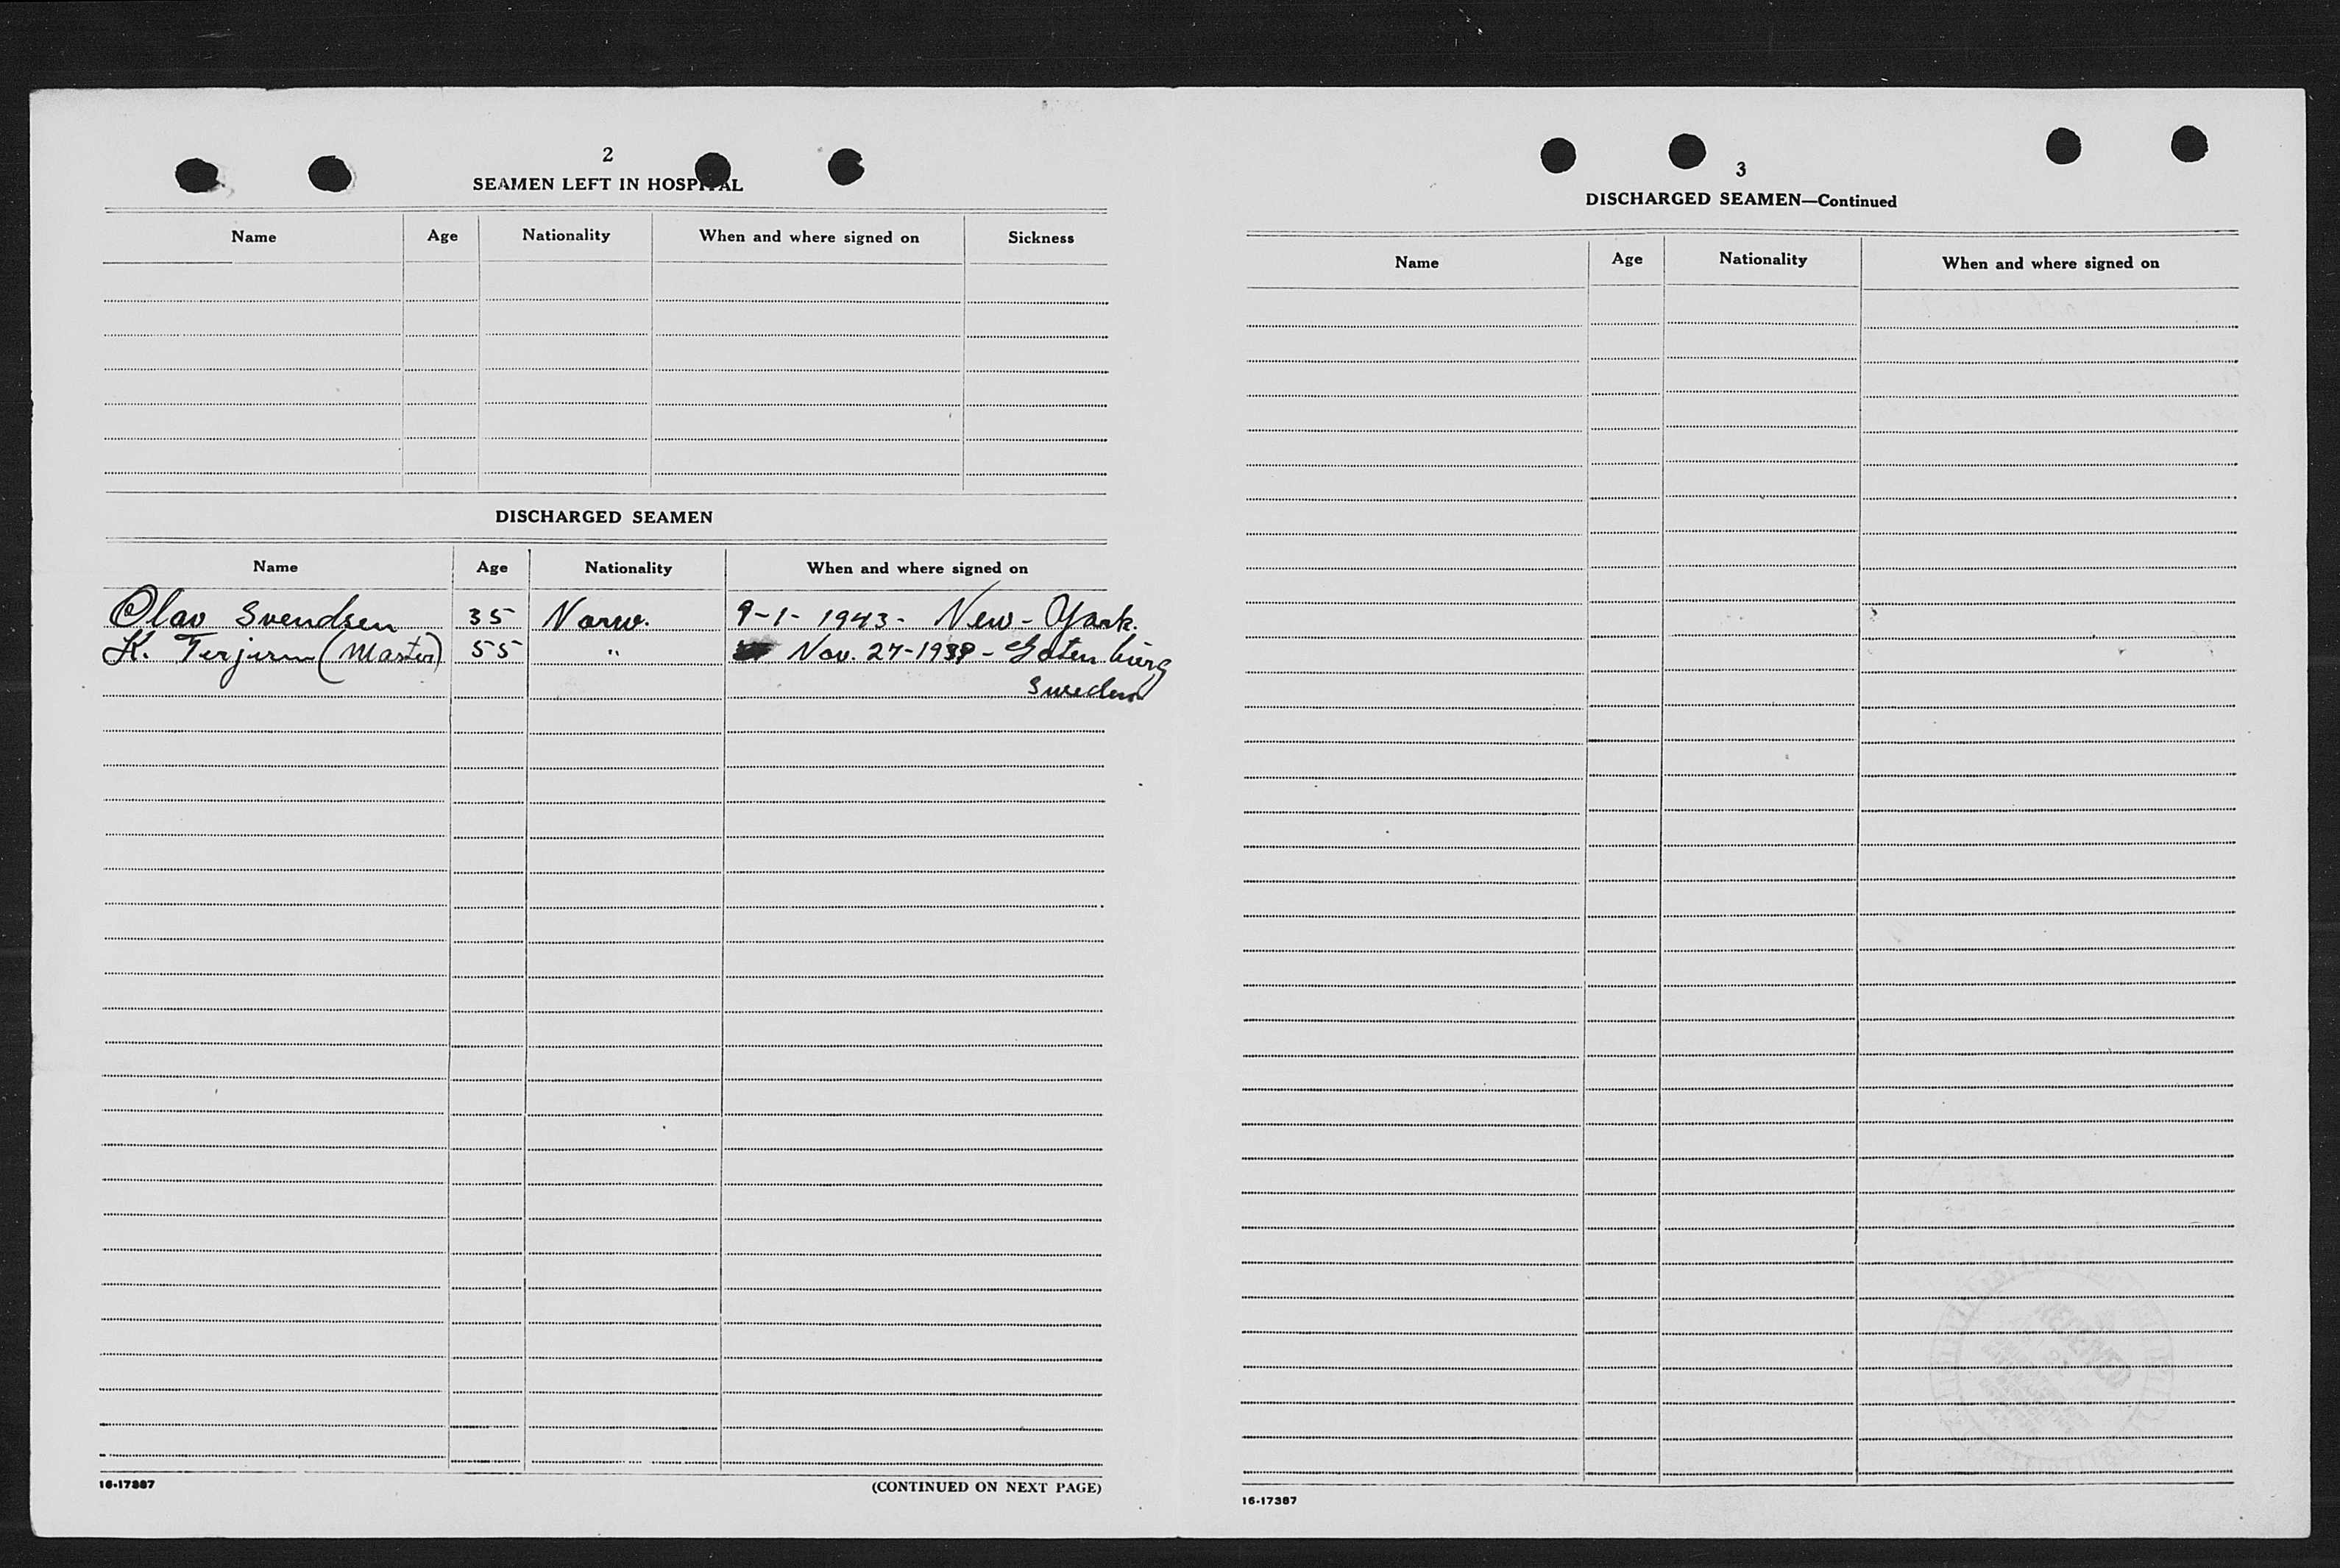 2
SEAMEN LEFT IN HOSPITAL
Name Age Nationality When and where signed on Sickness
DISCHARGED SEAMEN
Name Age Nationality When and where signed on
Olav Svendsen 35 Norw. 9-1-1943- New-York.
K. (Master) 55 " Nov. 27-1939 - Gotenburg
Sweden
16-17387
(CONTINUED ON NEXT PAGE)
3
DISCHARGED SEAMEN—Continued
Name Age Nationality When and where signed on
16-17387
RECEIVED